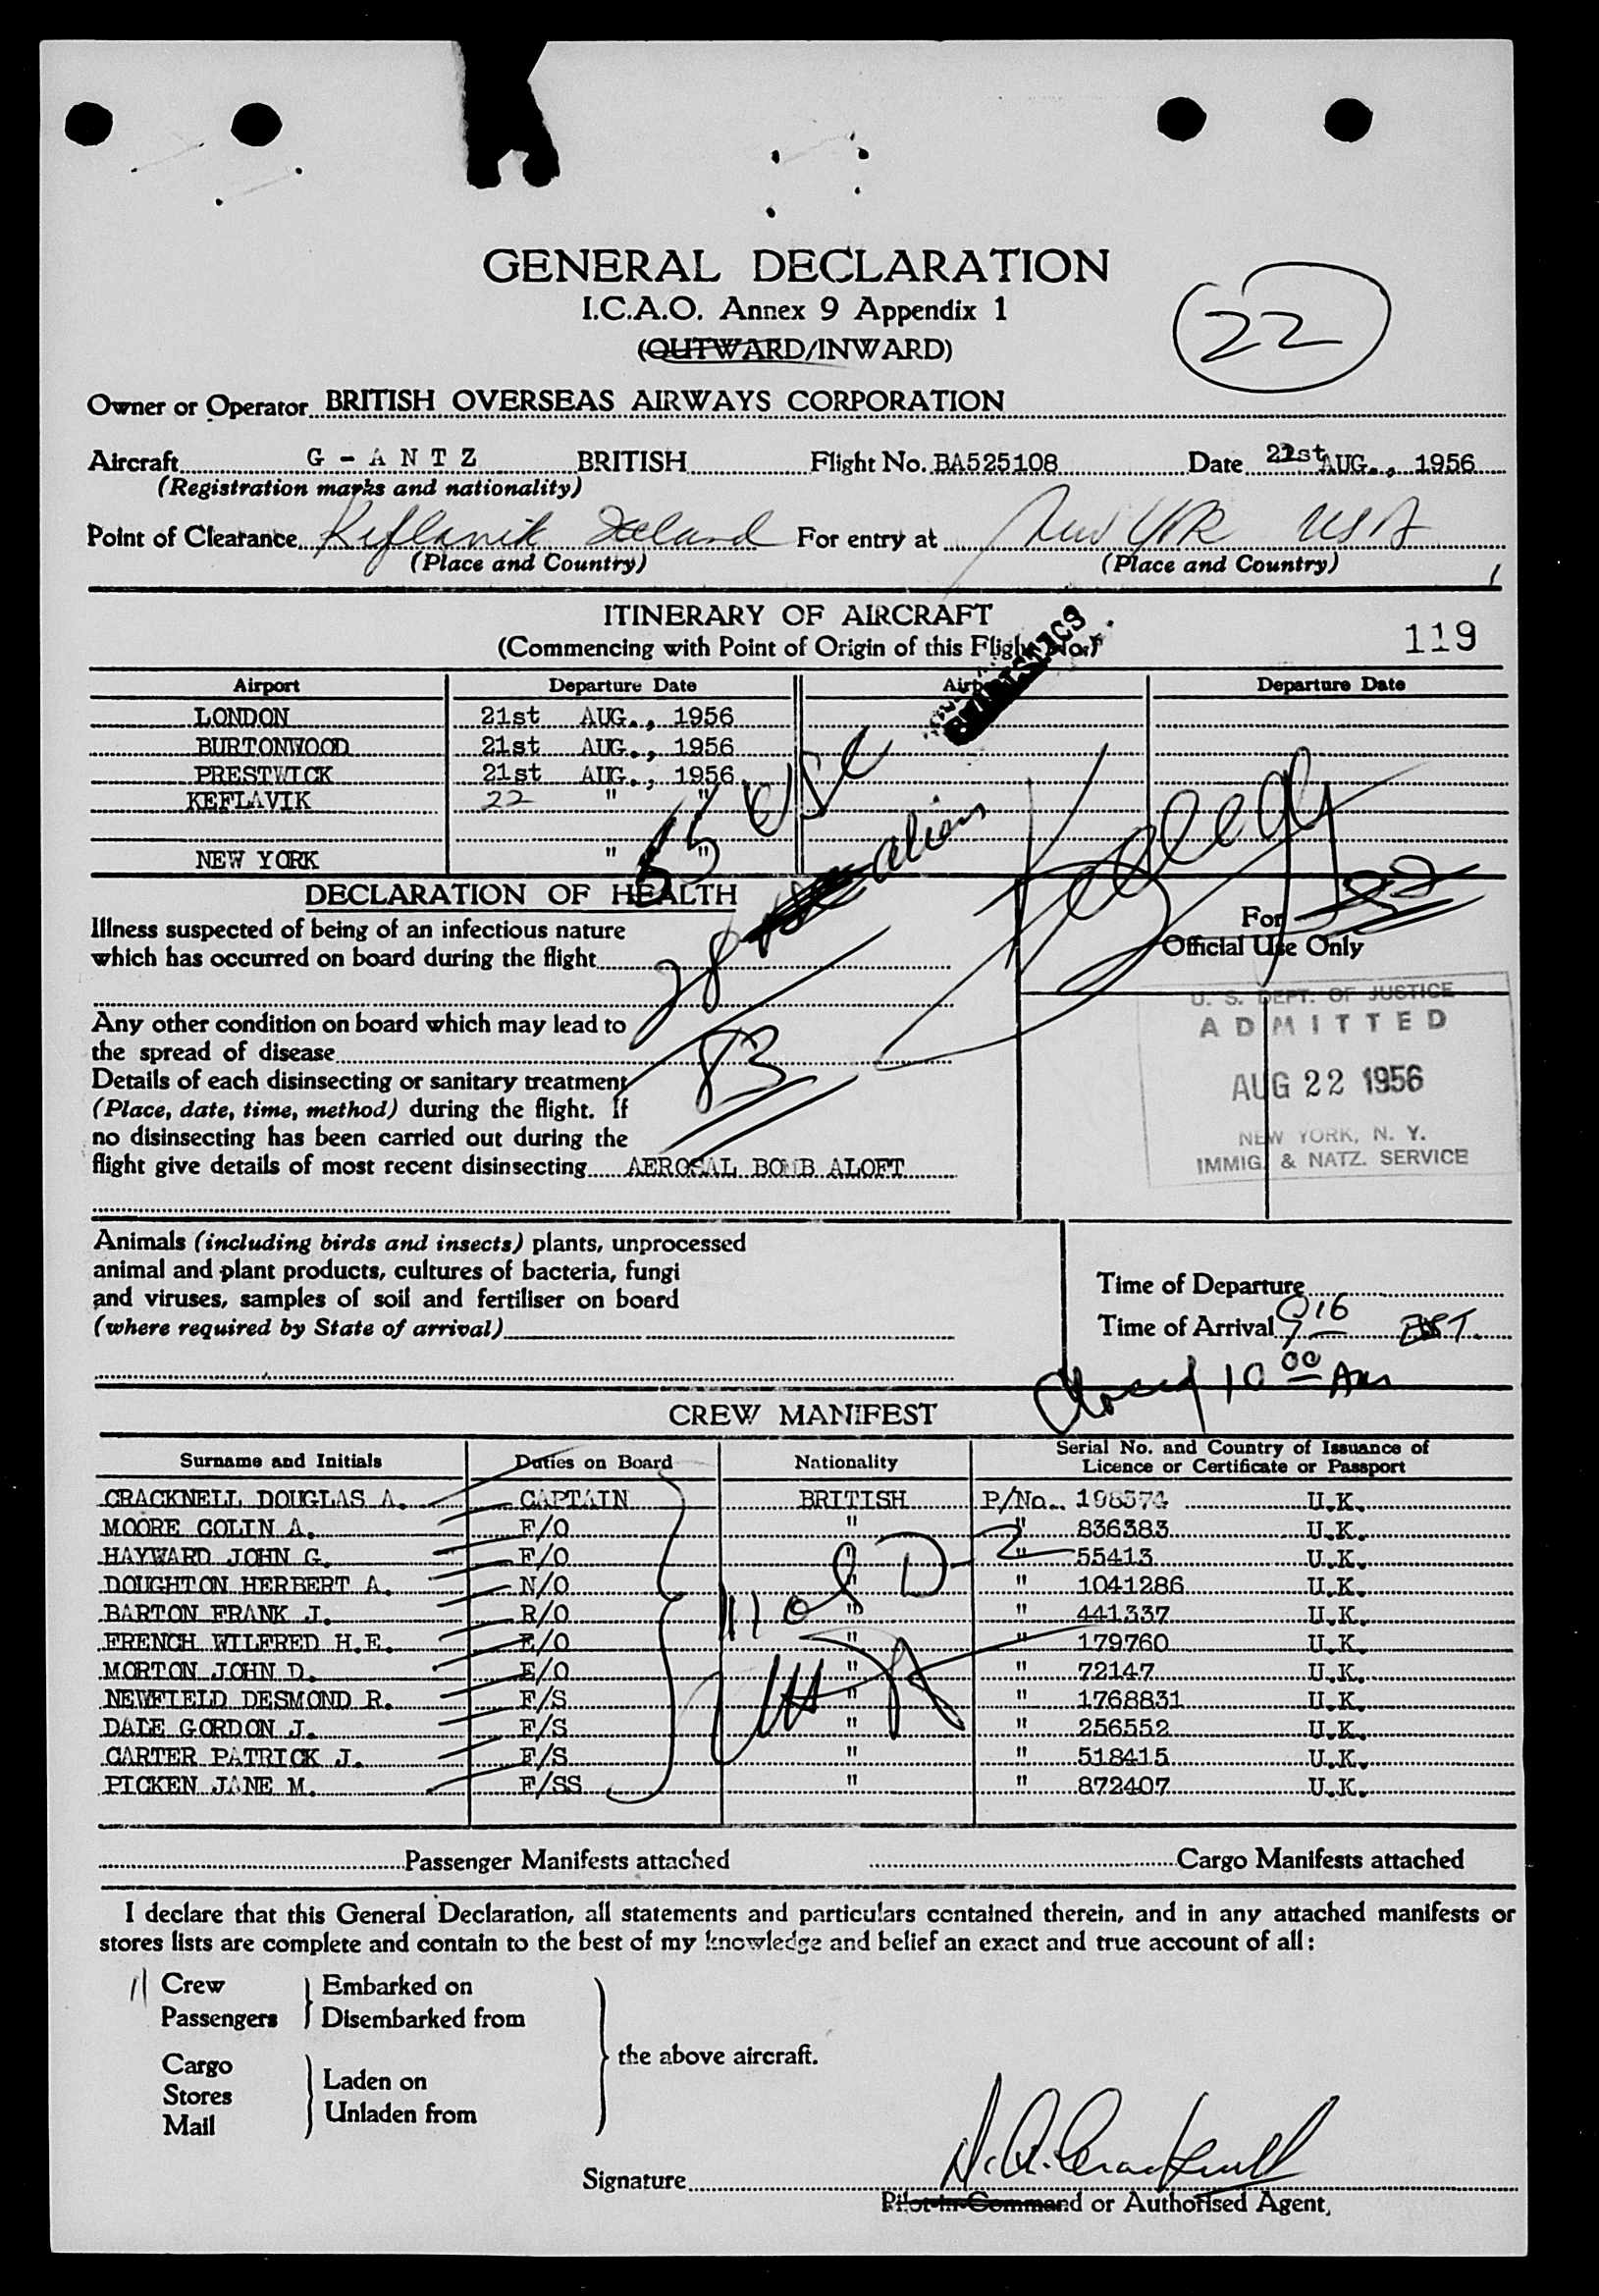 GENERAL DECLARATION
I.C.A.O. Annex 9 Appendix 1
(OUTWARD/INWARD)
22
Owner or Operator BRITISH OVERSEAS AIRWAYS CORPORATION
Aircraft G - A N T Z BRITISH Flight No. BA525108 Date 21st AUG., 1956
(Registration marks and nationality)
Point of Clearance Keflavik Iceland For entry at New York USA
(Place and Country) (Place and Country)
ITINERARY OF AIRCRAFT
(Commencing with Point of Origin of this Flight No.)
119
Airport Departure Date Airport Departure Date
LONDON 21st AUG., 1956
BURTONWOOD 21st AUG., 1956
PRESTWICK 21st AUG., 1956
KEFLAVIK 22 " "
NEW YORK " "
55 USC
28 aliens
83
DECLARATION OF HEALTH
Illness suspected of being of an infectious nature
which has occurred on board during the flight
Any other condition on board which may lead to
the spread of disease
Details of each disinsecting or sanitary treatment
(Place, date, time, method) during the flight. If
no disinsecting has been carried out during the
flight give details of most recent disinsecting AEROSAL BOMB ALOFT
For
Official Use Only
U. S. DEPT. OF JUSTICE
ADMITTED
AUG 22 1956
NEW YORK, N. Y.
IMMIG. & NATZ. SERVICE
Animals (including birds and insects) plants, unprocessed
animal and plant products, cultures of bacteria, fungi
and viruses, samples of soil and fertiliser on board
(where required by State of arrival)
Time of Departure
Time of Arrival 916 EST.
Closed 10 00 Am
CREW MANIFEST
Surname and Initials Duties on Board Nationality Serial No. and Country of Issuance of
Licence or Certificate or Passport
CRACKNELL DOUGLAS A. CAPTAIN BRITISH P/No. 198574 U.K.
MOORE COLIN A. F/O " " 836383 U.K.
HAYWARD JOHN G. F/O " " 55413 U.K.
DOUGHTON HERBERT A. N/O " " 1041286 U.K.
BARTON FRANK J. R/O " " 441337 U.K.
FRENCH WILFRED H.E. E/O " " 179760 U.K.
MORTON JOHN D. E/O " " 72147 U.K.
NEWFIELD DESMOND R. F/S " " 1768831 U.K.
DALE GORDON J. F/S " " 256552 U.K.
CARTER PATRICK J. F/S " " 518415 U.K.
PICKEN JANE M. F/SS " " 872407 U.K.
Passenger Manifests attached Cargo Manifests attached
I declare that this General Declaration, all statements and particulars contained therein, and in any attached manifests or
stores lists are complete and contain to the best of my knowledge and belief an exact and true account of all:
11 Crew Embarked on
Passengers Disembarked from
the above aircraft.
Cargo
Stores Laden on
Mail Unladen from
Signature D. A. Cracknell
Pilot-in-Command or Authorised Agent,